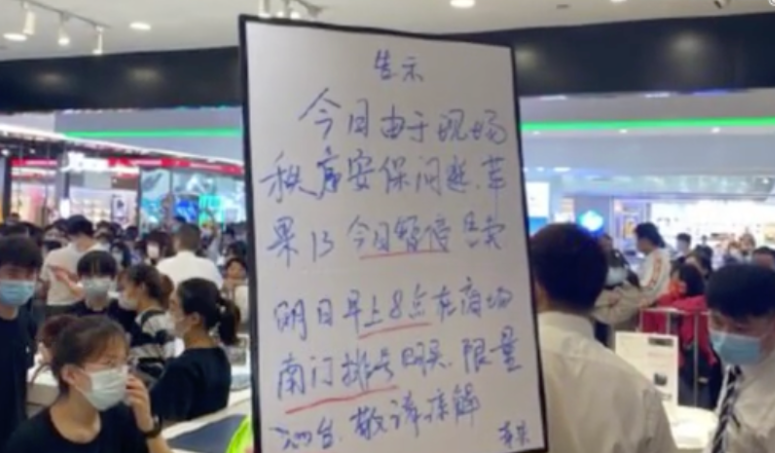 告示
今日由于现场
秩序安保问题.苹
果13今日暂停售卖
明日早上8点在商场
南门排号购买.限量
200台.敬请谅解